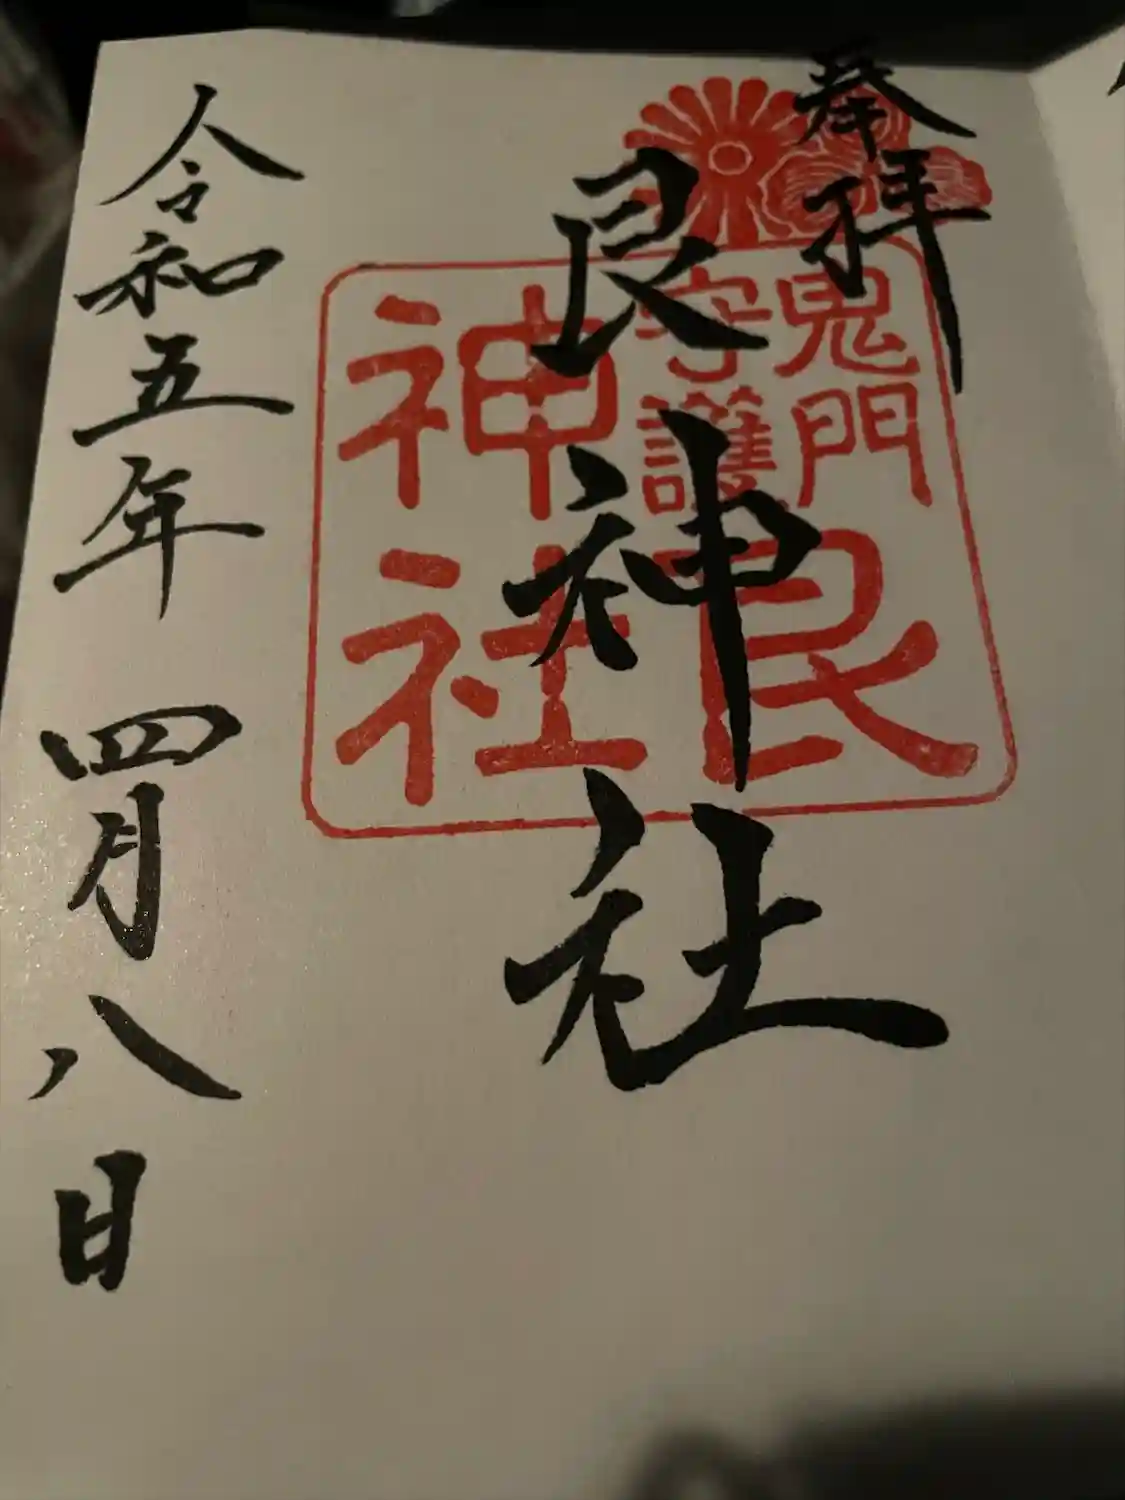 奉拝
鬼門
守護
艮
神社
艮神社
令和五年 四月八日